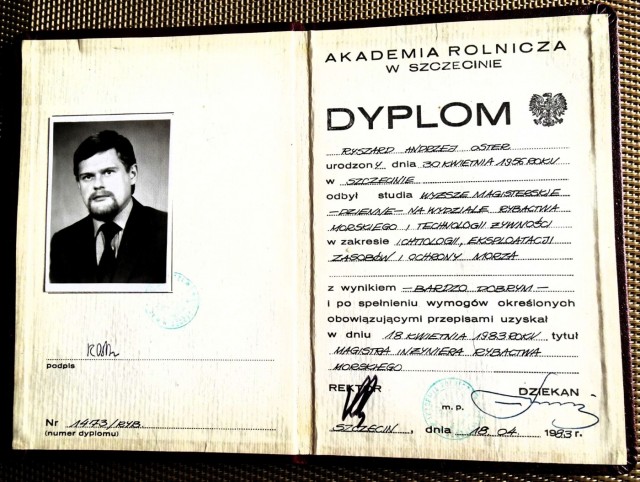 podpis
Nr 1473/RYB.
(numer dyplomu)
AKADEMIA ROLNICZA
W SZCZECINIE
DYPLOM
RYSZARD ANDRZEJ OSTER
urodzony dnia 30 KWIETNIA 1956 ROKU
w SZCZECINIE
odbył studia WYŻSZE MAGISTERSKIE
-DZIENNE- NA WYDZIALE RYBACTWA
MORSKIEGO I TECHNOLOGII ŻYWNOŚCI
w zakresie ICHTIOLOGII, EKSPLOATACJI
ZASOBÓW I OCHRONY MORZA
z wynikiem - BARDZO DOBRYM -
i po spełnieniu wymogów określonych
obowiązującymi przepisami uzyskał
w dniu 18 KWIETNIA 1983 ROKU tytuł
MAGISTRA INŻYNIERA RYBACTWA
MORSKIEGO
REKTOR DZIEKAN
m. p.
SZCZECIN, dnia 18.04 1983 r.